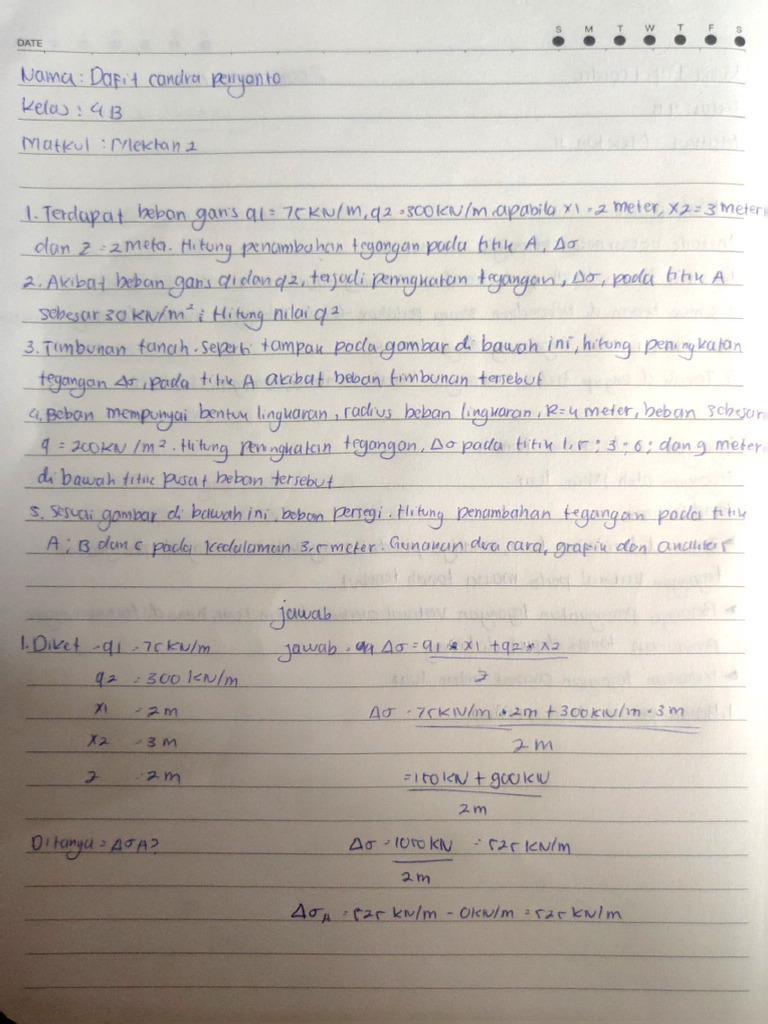 DATE
S M T W T F S
Nama : Dafit candra periyanto
Kelas : 4B
Matkul : Mektan 2
1. Terdapat beban garis q1 = 75 KN/m, q2 = 300 KN/m. apabila x1 = 2 meter, x2 = 3 meter
dan z = 2 meta. Hitung penambahan tegangan pada titik A, Δσ
2. Akibat beban garis q1 dan q2, terjadi peningkatan tegangan, Δσ, pada titik A
sebesar 30 KN/m² ; Hitung nilai q2
3. Timbunan tanah. seperti tampak pada gambar di bawah ini, hitung peningkatan
tegangan Δσ, pada titik A akibat beban timbunan tersebut
4. Beban mempunyai bentuk lingkaran, radius beban lingkaran, R = 4 meter, beban sebesar
q = 200 KN/m². Hitung peningkatan tegangan, Δσ pada titik 1,5 ; 3 ; 6 ; dan 9 meter
di bawah titik pusat beban tersebut
5. Sesuai gambar di bawah ini, beban persegi. Hitung penambahan tegangan pada titik
A ; B dan C pada kedalaman 3,5 meter. Gunakan dua cara, grafik dan analitis
jawab
1. Diket - q1 = 75 KN/m
q2 = 300 KN/m
x1 = 2 m
x2 = 3 m
z = 2 m
Ditanya = ΔσA?
jawab = Δσ = q1 * x1 + q2 * x2
z
Δσ = 75 KN/m * 2m + 300 KN/m * 3 m
2 m
= 150 KN + 900 KN
2 m
Δσ = 1050 KN = 525 KN/m
2 m
ΔσA = 525 KN/m - 0 KN/m = 525 KN/m